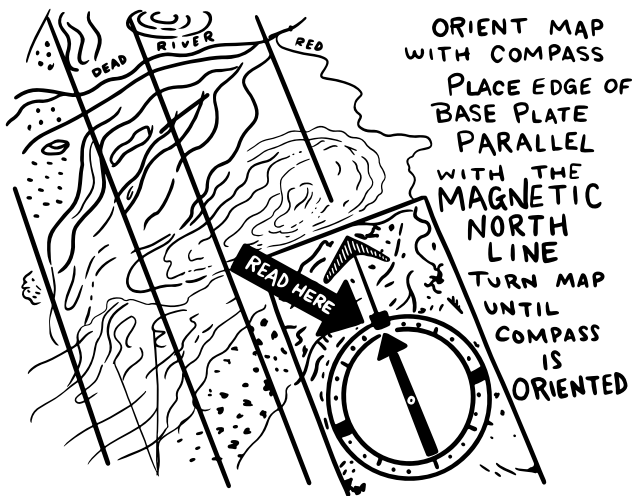 DEAD RIVER RED
READ HERE
ORIENT MAP
WITH COMPASS
PLACE EDGE OF
BASE PLATE
PARALLEL
WITH THE
MAGNETIC
NORTH
LINE
TURN MAP
UNTIL
COMPASS
IS
ORIENTED